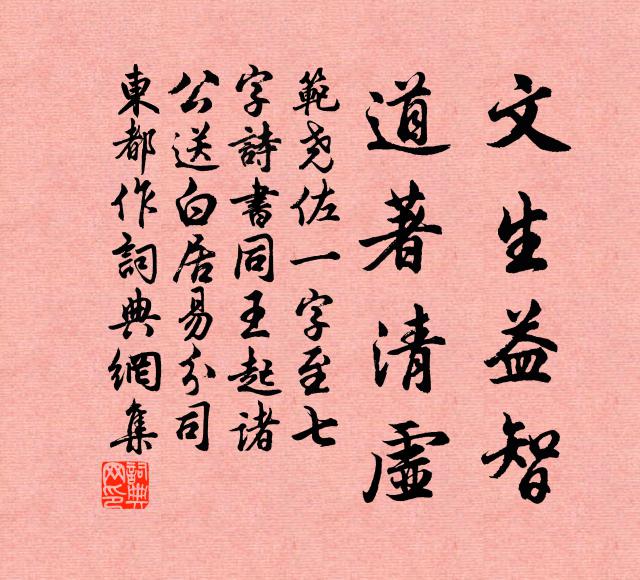 文生益智
道著清虛
範堯佐一字至七
字詩書同王起諸
公送白居易分司
東都作詞典網集
詞典
网印